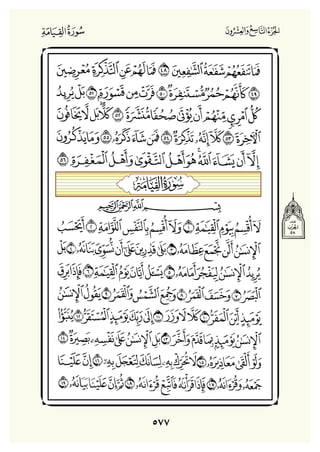 الجزء التاسع والعشرون سورة القيامة
فَمَا تَنفَعُهُمْ شَفَٰعَةُ ٱلشَّٰفِعِينَ ٤٨ فَمَا لَهُمْ عَنِ ٱلتَّذْكِرَةِ مُعْرِضِينَ
٤٩ كَأَنَّهُمْ حُمُرٌ مُّسْتَنفِرَةٌ ٥٠ فَرَّتْ مِن قَسْوَرَةٍۭ ٥١ بَلْ يُرِيدُ
كُلُّ ٱمْرِئٍ مِّنْهُمْ أَن يُؤْتَىٰ صُحُفًا مُّنَشَّرَةً ٥٢ كَلَّا ۖ بَل لَّا يَخَافُونَ
ٱلْءَاخِرَةَ ٥٣ كَلَّآ إِنَّهُۥ تَذْكِرَةٌ ٥٤ فَمَن شَآءَ ذَكَرَهُۥ ٥٥ وَمَا يَذْكُرُونَ
إِلَّآ أَن يَشَآءَ ٱللَّهُ ۚ هُوَ أَهْلُ ٱلتَّقْوَىٰ وَأَهْلُ ٱلْمَغْفِرَةِ ٥٦
سُورَةُ ٱلْقِيَامَةِ
بِسْمِ ٱللَّهِ ٱلرَّحْمَٰنِ ٱلرَّحِيمِ
لَآ أُقْسِمُ بِيَوْمِ ٱلْقِيَٰمَةِ ١ وَلَآ أُقْسِمُ بِٱلنَّفْسِ ٱللَّوَّامَةِ ٢ أَيَحْسَبُ
ٱلْإِنسَٰنُ أَلَّن نَّجْمَعَ عِظَامَهُۥ ٣ بَلَىٰ قَٰدِرِينَ عَلَىٰٓ أَن نُّسَوِّىَ بَنَانَهُۥ ٤ بَلْ
يُرِيدُ ٱلْإِنسَٰنُ لِيَفْجُرَ أَمَامَهُۥ ٥ يَسْـَٔلُ أَيَّانَ يَوْمُ ٱلْقِيَٰمَةِ ٦ فَإِذَا بَرِقَ
ٱلْبَصَرُ ٧ وَخَسَفَ ٱلْقَمَرُ ٨ وَجُمِعَ ٱلشَّمْسُ وَٱلْقَمَرُ ٩ يَقُولُ ٱلْإِنسَٰنُ
يَوْمَئِذٍ أَيْنَ ٱلْمَفَرُّ ١٠ كَلَّا لَا وَزَرَ ١١ إِلَىٰ رَبِّكَ يَوْمَئِذٍ ٱلْمُسْتَقَرُّ ١٢ يُنَبَّؤُا۟
ٱلْإِنسَٰنُ يَوْمَئِذٍۭ بِمَا قَدَّمَ وَأَخَّرَ ١٣ بَلِ ٱلْإِنسَٰنُ عَلَىٰ نَفْسِهِۦ بَصِيرَةٌ ١٤
وَلَوْ أَلْقَىٰ مَعَاذِيرَهُۥ ١٥ لَا تُحَرِّكْ بِهِۦ لِسَانَكَ لِتَعْجَلَ بِهِۦٓ ١٦ إِنَّ عَلَيْنَا
جَمْعَهُۥ وَقُرْءَانَهُۥ ١٧ فَإِذَا قَرَأْنَٰهُ فَٱتَّبِعْ قُرْءَانَهُۥ ١٨ ثُمَّ إِنَّ عَلَيْنَا بَيَانَهُۥ ١٩
الحزب
٥٨
٥٧٧